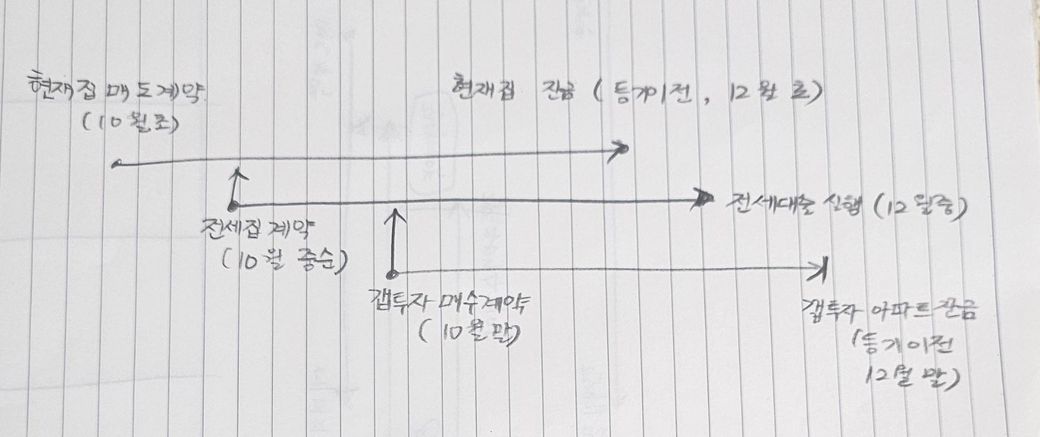 현재집 매도계약
(10월초)
현재집 잔금 (등기이전, 12월 초)
전세대출 실행 (12월중)
전세집 계약
(10월 중순)
갭투자 매수계약
(10월 말)
갭투자 아파트 잔금
(등기이전
12월 말)